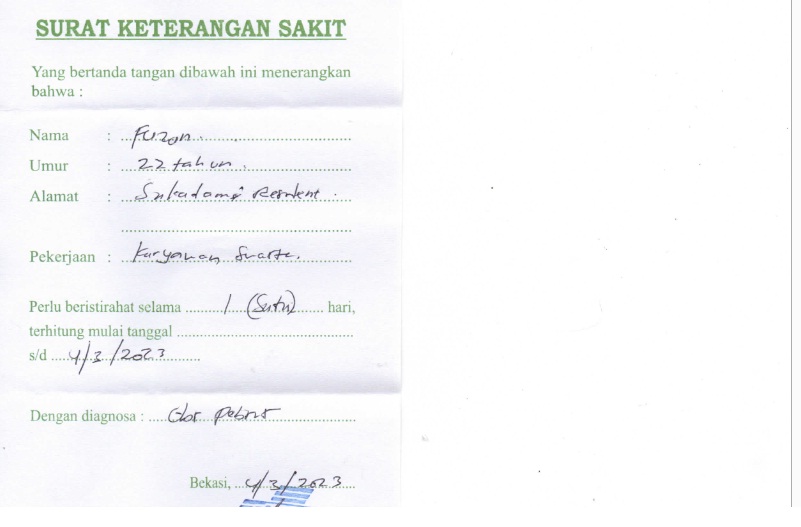 SURAT KETERANGAN SAKIT
Yang bertanda tangan dibawah ini menerangkan
bahwa :
Nama : Fuzon.
Umur : 22 tahun.
Alamat : Sukadami Resident.
Pekerjaan : Karyawan Swasta.
Perlu beristirahat selama 1 (Satu) hari,
terhitung mulai tanggal
s/d 4/3/2023
Dengan diagnosa :
Bekasi, 4/3/2023